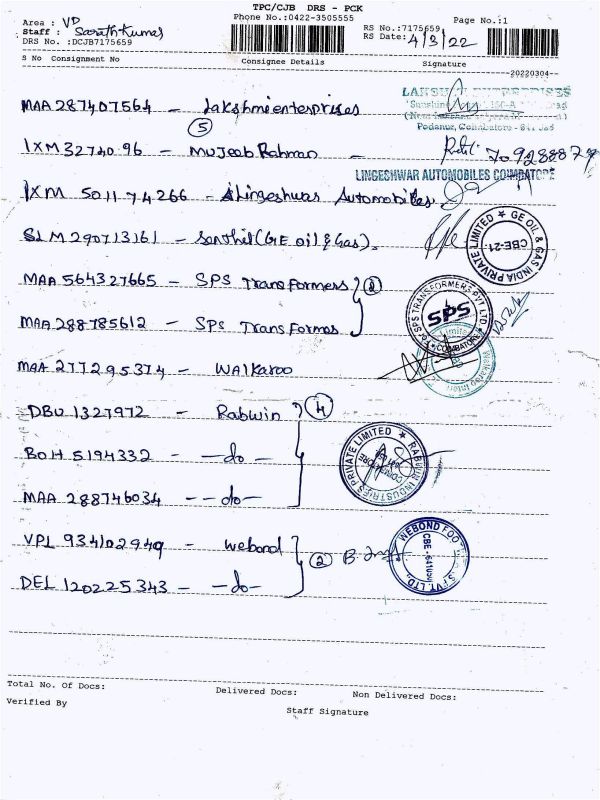 TPC/CJB DRS - PCK
Area : VD Phone No.:0422-3505555 RS No.:7175659 Page No.:1
Staff : Sarathkumar RS Date: 4/3/22
DRS No. :DCJB7175659
S No Consignment No Consignee Details Signature
20220304
MAA 287407564 - Lakshmi enterprises
5
IXM 3274096 - Mujeeb Rahman -
LINGESHWAR AUTOMOBILES COIMBATORE
IXM 501174266 - Lingeshwar Automobiles
SLM 290713161 - Santhil (GE oil & Gas)
GE OIL & GAS INDIA PRIVATE LIMITED
CBE-21
MAA 564327665 - SPS Transformers
MAA 288785612 - SPS Transformas
For SPS TRANSFORMERS PVT LTD
SPS
COIMBATORE
MAA 277295374 - Walkaroo
DBU 1327972 - Rabwin 4
BOH 5194332 - -do-
MAA 288746034 - -do-
RABWIN INDUSTRIES PRIVATE LIMITED
COIMBATORE
VPL 934102949 - webond 2
DEL 120225343 - -do-
Total No. Of Docs: Delivered Docs: Non Delivered Docs:
Verified By Staff Signature